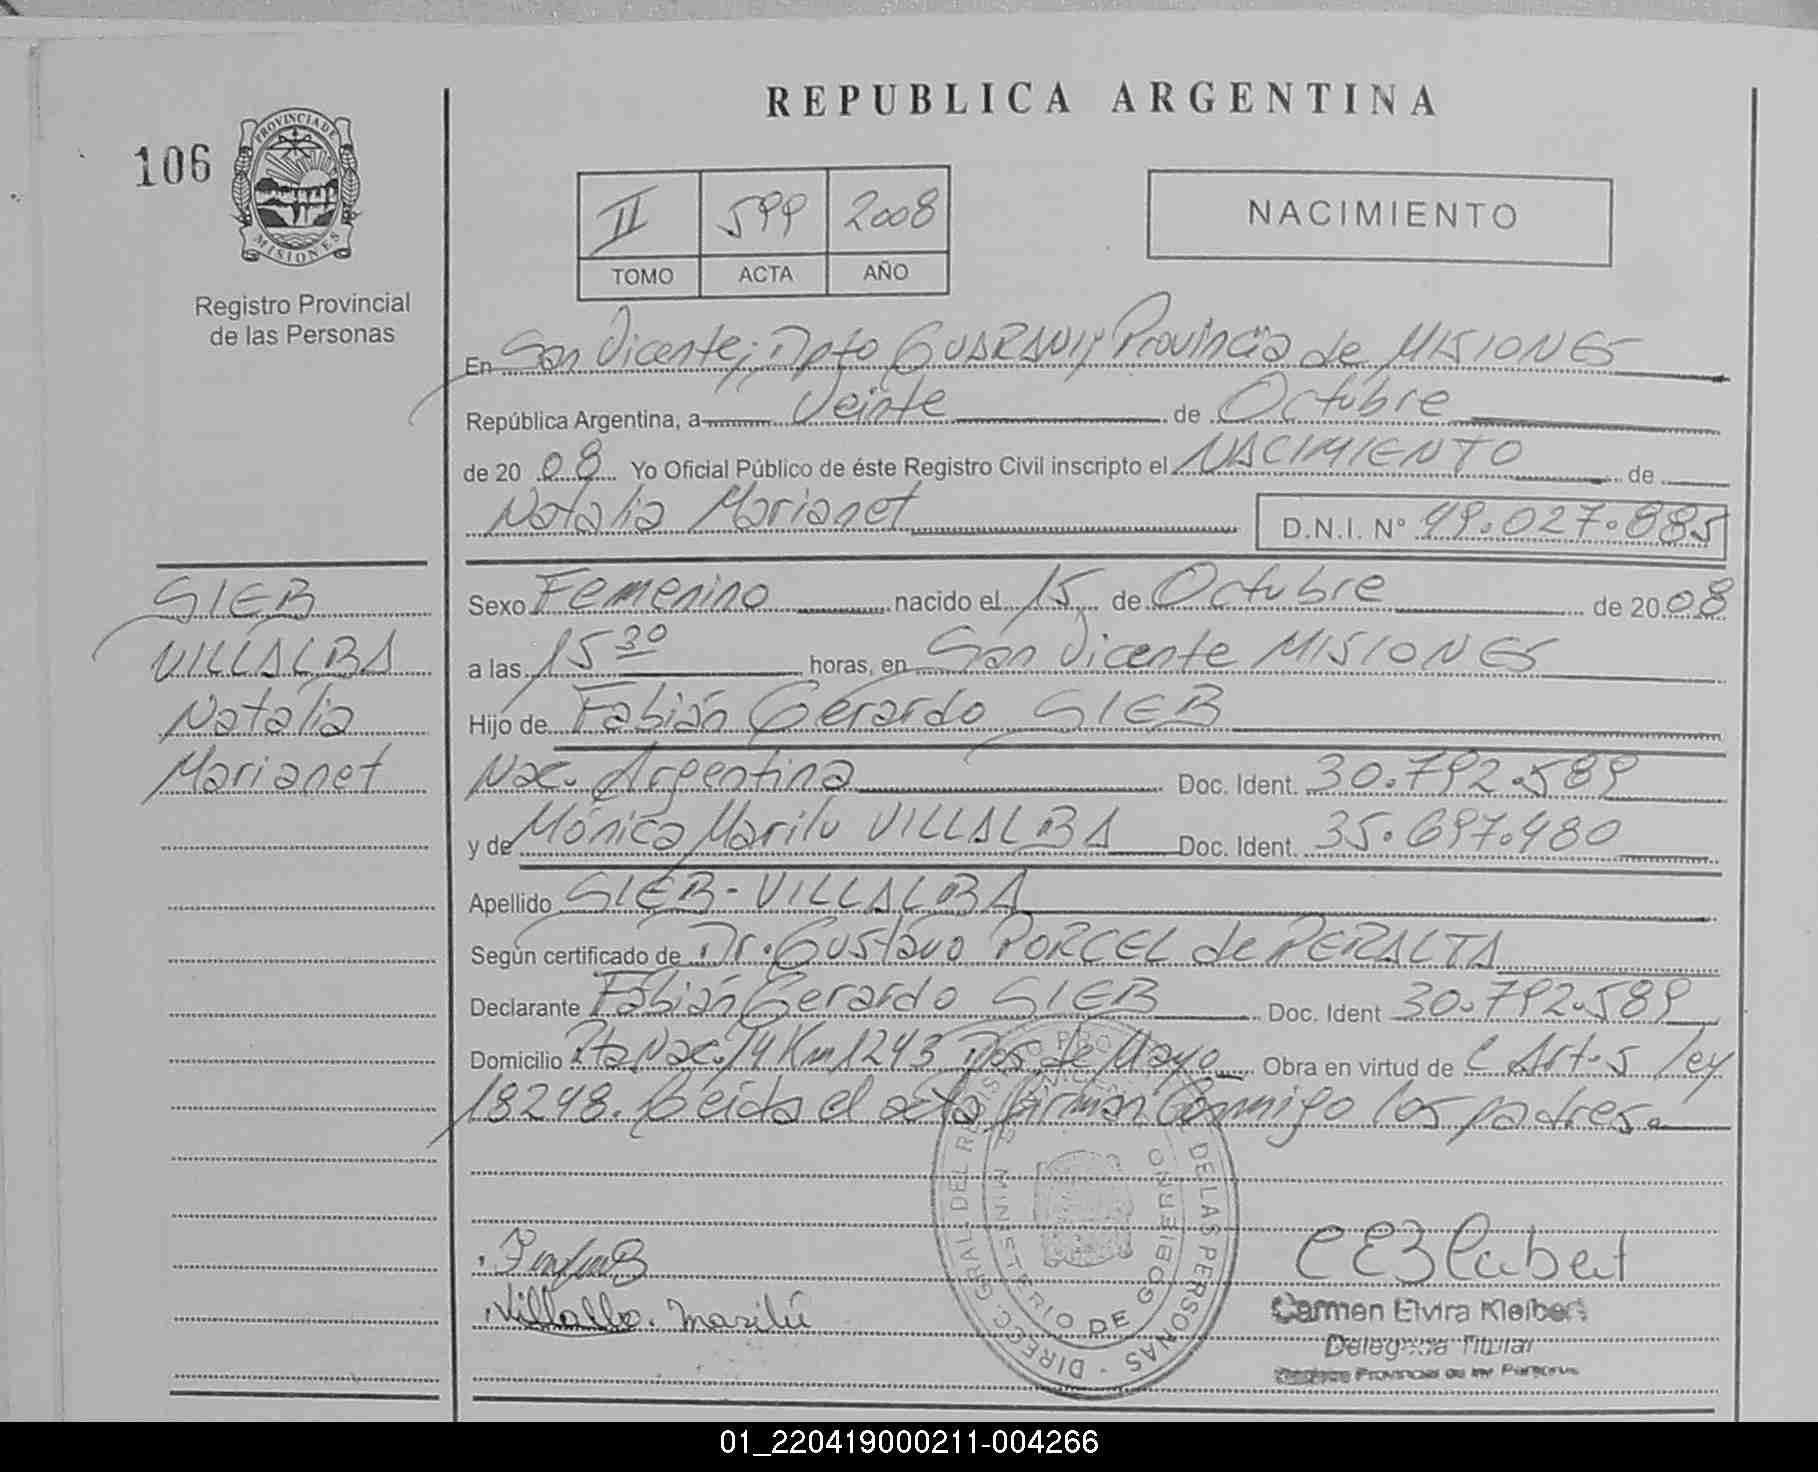 REPUBLICA ARGENTINA
106
PROVINCIA DE
MISIONES
Registro Provincial
de las Personas
II 599 2008
TOMO ACTA AÑO
NACIMIENTO
En San Vicente; Dpto GUARANI Provincia de MISIONES
República Argentina, a Veinte de Octubre
de 20 08 Yo Oficial Público de éste Registro Civil inscripto el NACIMIENTO de
Natalia Marianet D.N.I. Nº 49.027.885
SIEB
VILLALBA
Natalia
Marianet
Sexo Femenino nacido el 15 de Octubre de 20 08
a las 15 30 horas, en San Vicente MISIONES
Hijo de Fabián Gerardo SIEB
Nac. Argentina Doc. Ident. 30.792.589
y de Mónica Marilu VILLALBA Doc. Ident. 35.697.480
Apellido SIEB - VILLALBA
Según certificado de Dr. Gustavo PORCEL de PERALTA
Declarante Fabián Gerardo SIEB Doc. Ident 30.792.589
Domicilio Rta Nac. 14 Km 1243 Dos de Mayo Obra en virtud de Art. 5 ley
18248. Leida el acta firman Conmigo los padres.
DIRECC. GRAL. DEL REGISTRO PROVINCIAL DE LAS PERSONAS
MINISTERIO DE GOBIERNO
Villalba. Marilú
Carmen Elvira Kleibert
Delegada Titular
Registro Provincial de las Personas
01_220419000211-004266